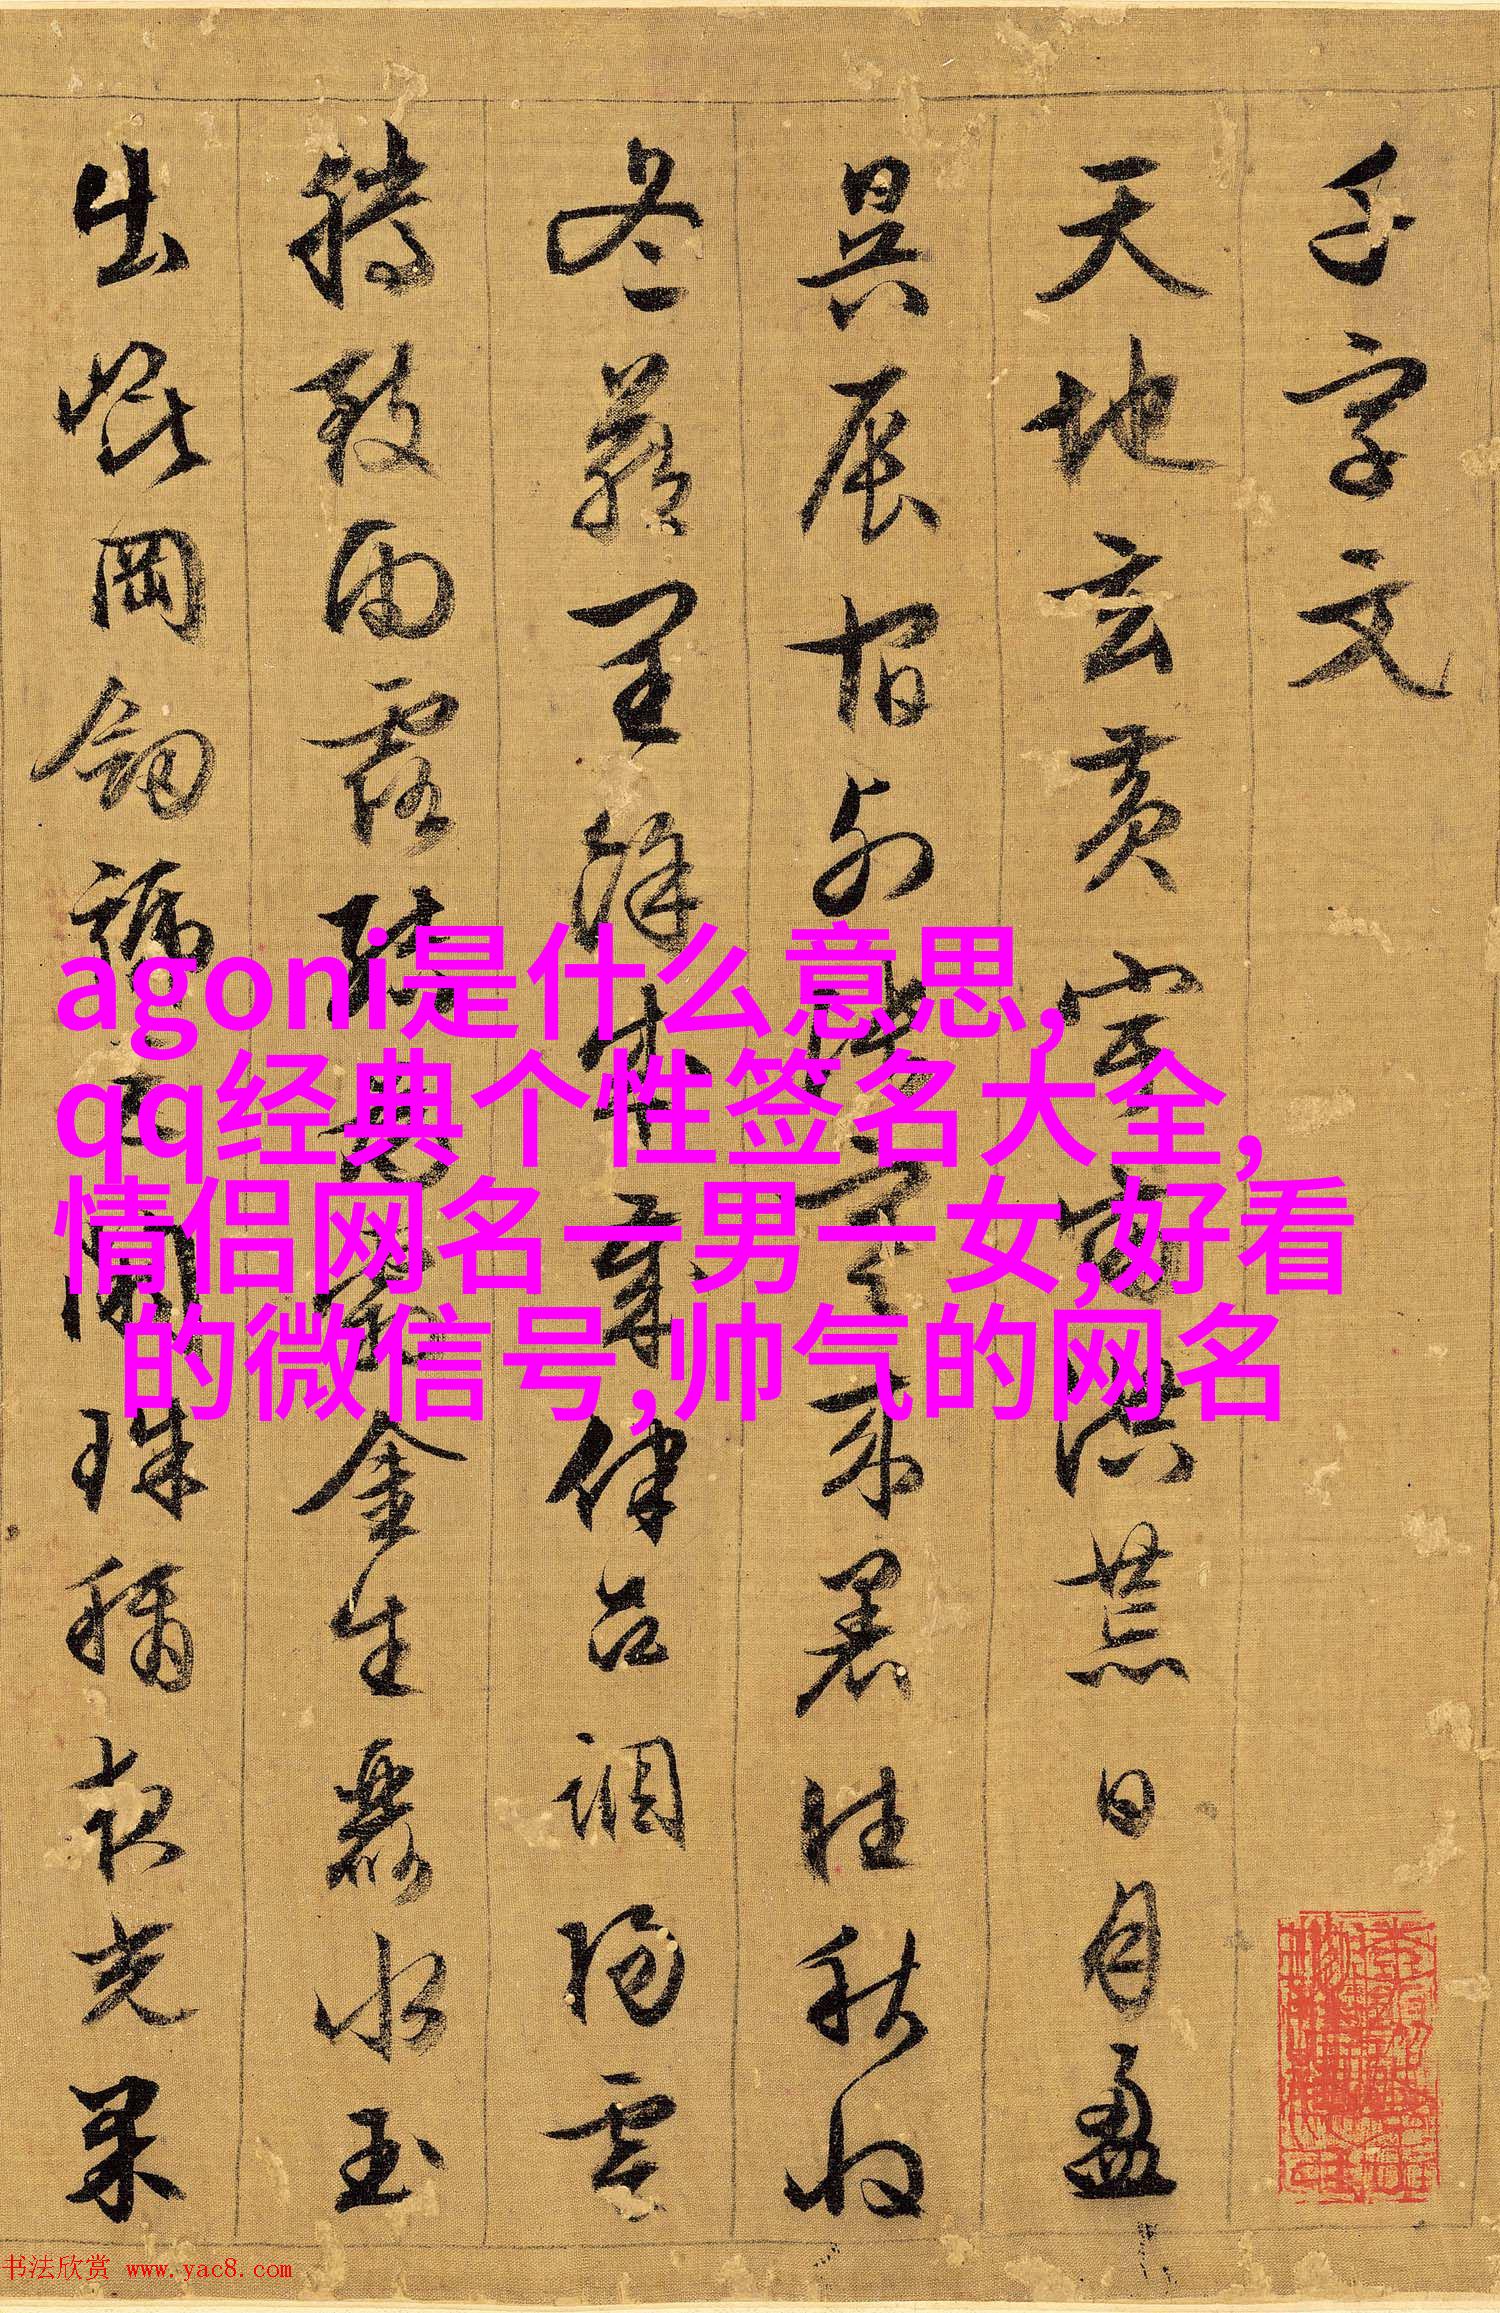 千字文
天地玄黃宇宙洪荒日月盈
昃辰宿列張寒来暑往秋收
冬藏閏餘成歲律呂調陽雲
騰致雨露結為霜金生麗水玉
出崑岡劍號巨闕珠稱夜光果
agoni是什么意思,
qq经典个性签名大全,
情侣网名一男一女,好看
的微信号,帅气的网名
书法欣赏 www.yac8.com